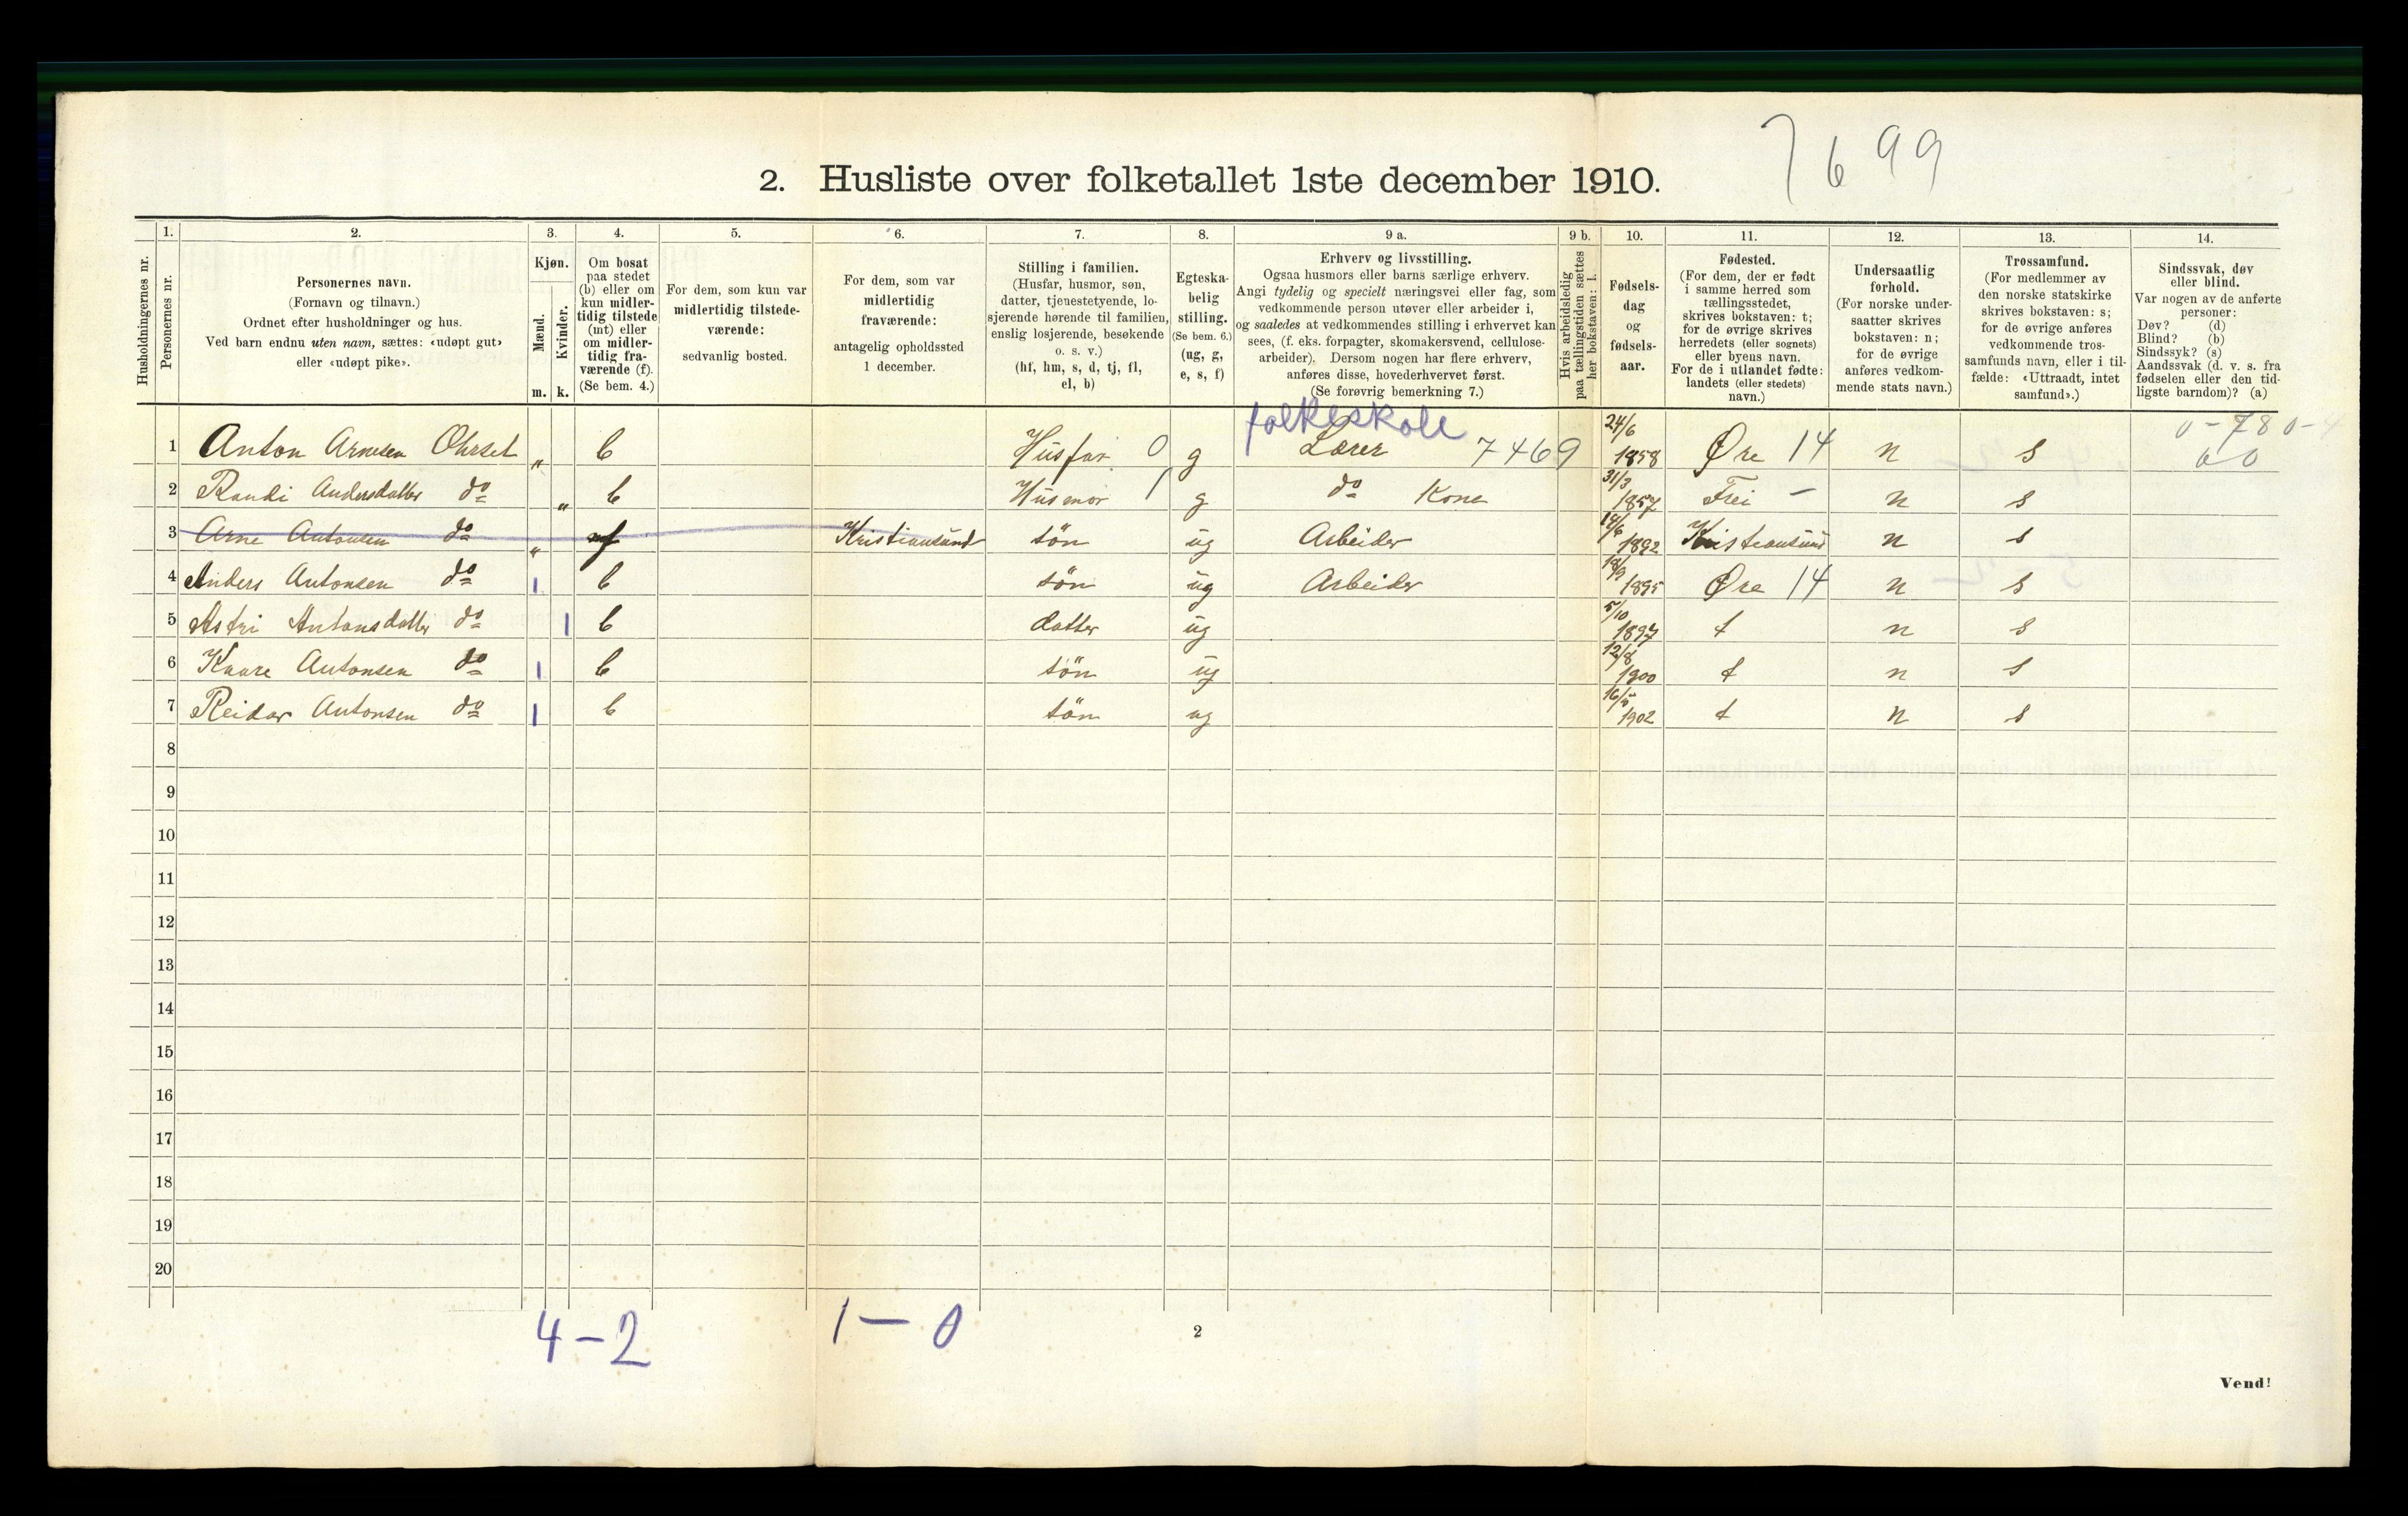 7699
2. Husliste over folketallet 1ste december 1910.
Husholdningernes nr.
1.
Personernes nr.
2.
Personernes navn.
(Fornavn og tilnavn.)
Ordnet efter husholdninger og hus.
Ved barn endnu uten navn, sættes: «udøpt gut»
eller «udøpt pike».
3.
Kjøn.
Mænd.
Kvinder.
m. k.
4.
Om bosat
paa stedet
(b) eller om
kun midler-
tidig tilstede
(mt) eller
om midler-
tidig fra-
værende (f).
(Se bem. 4.)
5.
For dem, som kun var
midlertidig tilstede-
værende:
sedvanlig bosted.
6.
For dem, som var
midlertidig
fraværende:
antagelig opholdssted
1 december.
7.
Stilling i familien.
(Husfar, husmor, søn,
datter, tjenestetyende, lo-
sjerende hørende til familien,
enslig losjerende, besøkende
o. s. v.)
(hf, hm, s, d, tj, fl,
el, b)
8.
Egteska-
belig
stilling.
(Se bem. 6.)
(ug, g,
e, s, f)
9 a.
Erhverv og livsstilling.
Ogsaa husmors eller barns særlige erhverv.
Angi tydelig og specielt næringsvei eller fag, som
vedkommende person utøver eller arbeider i,
og saaledes at vedkommendes stilling i erhvervet kan
sees, (f. eks. forpagter, skomakersvend, cellulose-
arbeider). Dersom nogen har flere erhverv,
anføres disse, hovederhvervet først.
(Se forøvrig bemerkning 7.)
9 b.
Hvis arbeidsledig
paa tællingstiden sættes
her bokstaven: l.
10.
Fødsels-
dag
og
fødsels-
aar.
11.
Fødested.
(For dem, der er født
i samme herred som
tællingsstedet,
skrives bokstaven: t;
for de øvrige skrives
herredets (eller sognets)
eller byens navn.
For de i utlandet fødte:
landets (eller stedets)
navn.)
12.
Undersaatlig
forhold.
(For norske under-
saatter skrives
bokstaven: n;
for de øvrige
anføres vedkom-
mende stats navn.)
13.
Trossamfund.
(For medlemmer av
den norske statskirke
skrives bokstaven: s;
for de øvrige anføres
vedkommende tros-
samfunds navn, eller i til-
fælde: «Uttraadt, intet
samfund».)
14.
Sindssvak, døv
eller blind.
Var nogen av de anførte
personer:
Døv? (d)
Blind? (b)
Sindssyk? (s)
Aandssvak (d. v. s. fra
fødselen eller den tid-
ligste barndom)? (a)
folkeskole
1 Anton Arnesen Ohrset " b Husfar 0 g Lærer 7469 24/6 1858 Øre 14 n s
2 Randi Andersdatter do " b Husmor 1 g do Kone 31/3 1857 Frei — n s
3 Arne Antonsen do " f Kristiansund sön ug Arbeider 14/6 1892 Kristiansund n s
4 Anders Antonsen do 1 b sön ug Arbeider 1895 Øre 14 n s
5 Astri Antonsdatter do 1 b datter ug 5/10 1897 t n s
6 Kaare Antonsen do 1 b sön ug 12/8 1900 t n s
7 Reidar Antonsen do 1 b sön ug 16/5 1902 t n s
8
9
10
11
12
13
14
15
16
17
18
19
20
4 – 2 1 – 0
2
Vend!